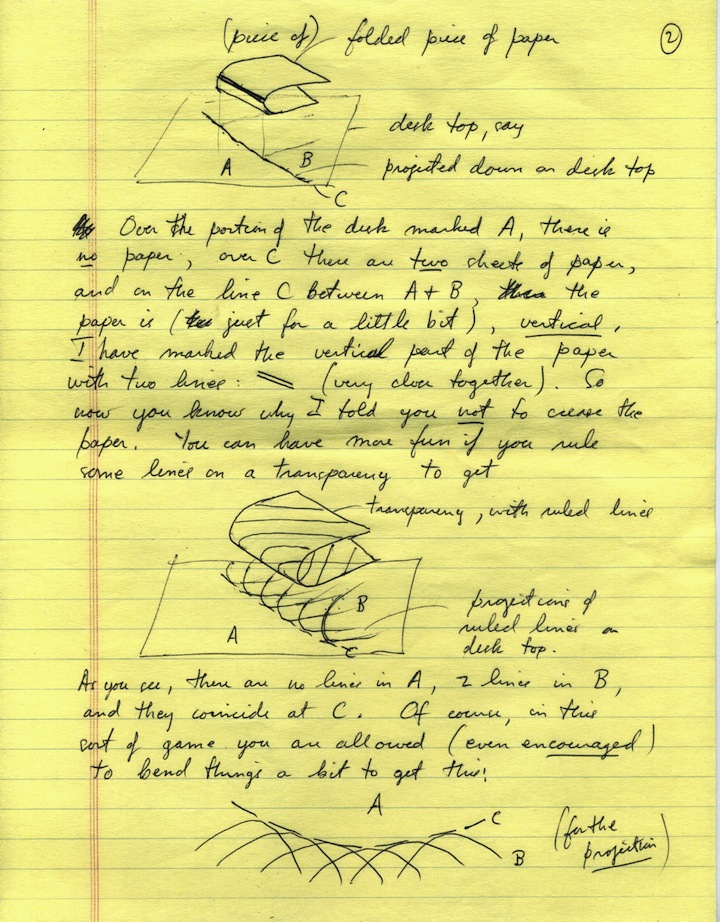 (piece of) folded piece of paper
2
desk top, say
A B projected down on desk top
C
Over the portion of the desk marked A, there is
no paper, over C there are two sheets of paper,
and on the line C between A + B, the
paper is (just for a little bit), vertical.
I have marked the vertical part of the paper
with two lines: (very close together). So
now you know why I told you not to crease the
paper. You can have more fun if you rule
some lines on a transparency to get
transparency, with ruled lines
B projections of
A ruled lines on
C desk top.
As you see, there are no lines in A, 2 lines in B,
and they coincide at C. Of course, in this
sort of game you are allowed (even encouraged)
to bend things a bit to get this:
A
C (for the
B projection)